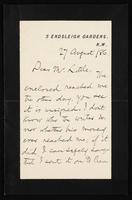 5 ENDSLEIGH GARDENS,
N.W.
27 August /86
Dear Mr. Little. The
enclosed reached me
the other day. You see
it is unsigned. I don't
know who the writer is
nor whether his money
ever reached me; if it
did I can safely
but I sent it on to